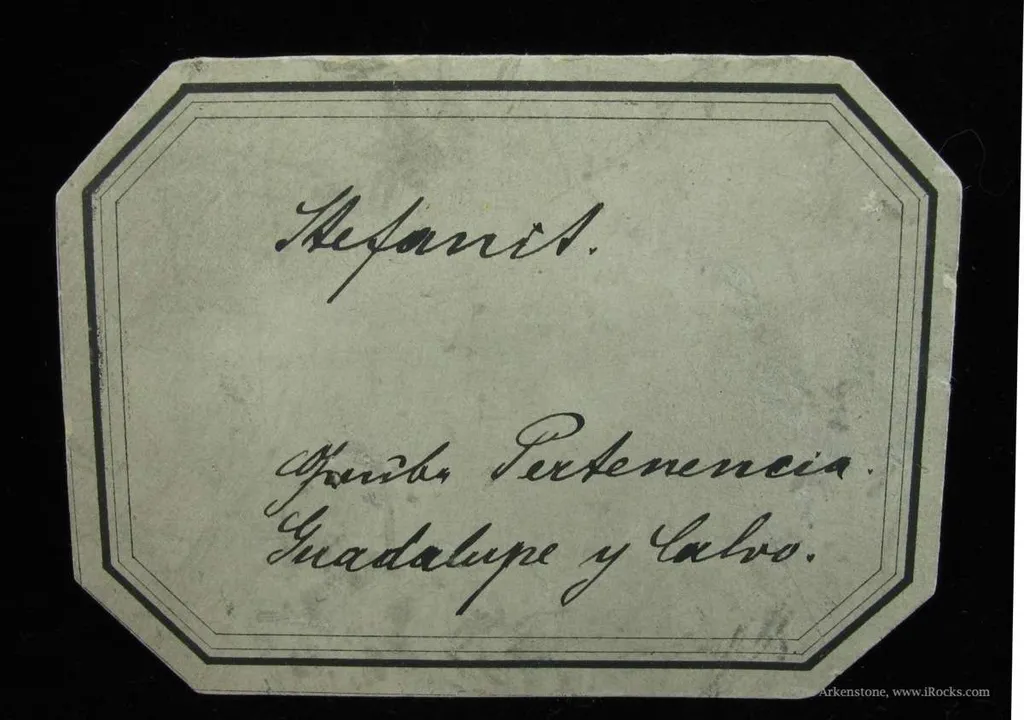 Stefanit.
Grube Pertenencia.
Guadalupe y Calvo.
Arkenstone, www.iRocks.com